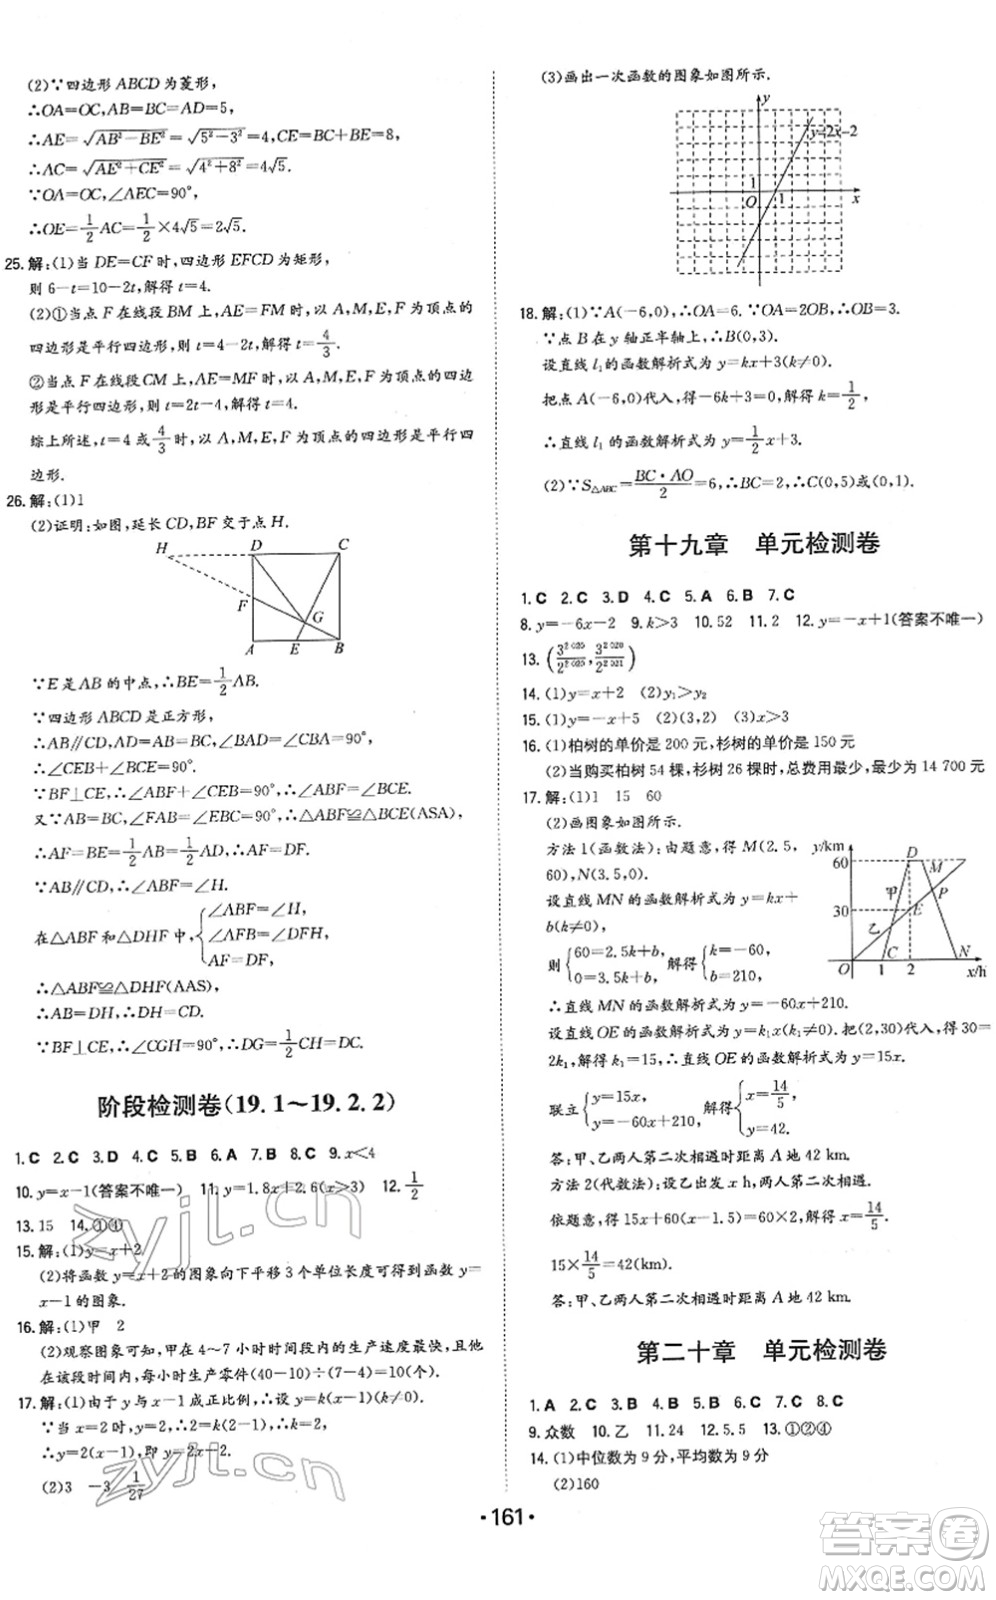 (2)∵四边形 ABCD 为菱形,
∴OA=OC,AB=BC=AD=5,
∴AE=√(AB²-BE²)=√(5²-3²)=4,CE=BC+BE=8,
∴AC=√(AE²+CE²)=√(4²+8²)=4√5.
∵OA=OC,∠AEC=90°,
∴OE=1/2 AC=1/2×4√5=2√5.
25.解:(1)当 DE=CF 时,四边形 EFCD 为矩形,
则 6-t=10-2t,解得 t=4.
(2)①当点 F 在线段 BM 上,AE=FM 时,以 A,M,E,F 为顶点的
四边形是平行四边形,则 t=4-2t,解得 t=4/3.
②当点 F 在线段 CM 上,AE=MF 时,以 A,M,E,F 为顶点的四边
形是平行四边形,则 t=2t-4,解得 t=4.
综上所述,t=4 或 4/3 时,以 A,M,E,F 为顶点的四边形是平行四
边形.
26.解:(1)1
(2)证明:如图,延长 CD,BF 交于点 H.
H D C
F G
A E B
∵E 是 AB 的中点,∴BE=1/2 AB.
∵四边形 ABCD 是正方形,
∴AB∥CD,AB=BC,∠DAB=∠CBA=90°,
∴∠CEB+∠BCE=90°.
∵BF⊥CE,∴∠ABF+∠CEB=90°,∴∠ABF=∠BCE.
又∵AB=BC,∠FAB=∠EBC=90°,∴△ABF≌△BCE(ASA),
∴AF=BE=1/2 AB=1/2 AD,∴AF=DF.
∵AB∥CD,∴∠ABF=∠H.
在△ABF 和△DHF 中,{∠ABF=∠H,
∠AFB=∠DFH,
AF=DF,
∴△ABF≌△DHF(AAS),
∴AB=DH,∴DH=CD.
∵BF⊥CE,∴∠CGH=90°,∴DG=1/2 CH=DC.
阶段检测卷(19.1～19.2.2)
1.C 2.C 3.D 4.C 5.B 6.A 7.B 8.C 9.x<4
10.y=x-1(答案不唯一) 11.y=1.8x+2.6(x>3) 12.1/2
13.15 14.①④
15.解:(1)y=x+2
(2)将函数 y=x+2 的图象向下平移 3 个单位长度可得到函数 y=
x-1 的图象.
16.解:(1)甲 2
(2)观察图象可知,甲在 4～7 小时时间段内的生产速度最快,且
在该段时间内,每小时生产零件(40-10)÷(7-4)=10(个).
17.解:(1)由于 y 与 x-1 成正比例,∴设 y=k(x-1)(k≠0).
∵当 x=2 时,y=2,∴2=k(2-1),∴k=2,
∴y=2(x-1),即 y=2x-2.
(2)3 -3 1/27
(3)画出一次函数的图象如图所示.
y
y=2x-2
1
O 1 x
18.解:(1)∵A(-6,0),∴OA=6.∵OA=2OB,∴OB=3.
∵点 B 在 y 轴正半轴上,∴B(0,3).
设直线 l₁ 的函数解析式为 y=kx+3(k≠0).
把点 A(-6,0)代入,得-6k+3=0,解得 k=1/2,
∴直线 l₁ 的函数解析式为 y=1/2 x+3.
(2)∵S△ABC=BC·AO/2=6,∴BC=2,∴C(0,5)或(0,1).
第十九章 单元检测卷
1.C 2.C 3.D 4.C 5.A 6.B 7.C
8.y=-6x-2 9.k>3 10.52 11.2 12.y=-x+1(答案不唯一)
14.(1)y=x+2 (2)y₁>y₂
15.(1)y=-x+5 (2)(3,2) (3)x>3
16.(1)柏树的单价是 200 元,杉树的单价是 150 元
(2)当购买柏树 54 棵,杉树 26 棵时,总费用最少,最少为 14 700 元
17.解:(1)1 15 60
(2)画图象如图所示.
方法 1(函数法):由题意,得 M(2.5,
60),N(3.5,0).
设直线 MN 的函数解析式为 y=kx+
b(k≠0),
则{60=2.5k+b,
0=3.5k+b,
解得{k=-60,
b=210,
y/km
60 D M
甲 P
30 E
乙
O 1 C 2 N x/h
∴直线 MN 的函数解析式为 y=-60x+210.
设直线 OE 的函数解析式为 y=k₁x(k₁≠0).把(2,30)代入,得 30=
2k₁,解得 k₁=15,∴直线 OE 的函数解析式为 y=15x.
联立{y=15x,
y=-60x+210,
解得{x=14/5,
y=42.
答:甲、乙两人第二次相遇时距离 A 地 42 km.
方法 2(代数法):设乙出发 x h,两人第二次相遇,
依题意,得 15x+60(x-1-1.5)=60,解得 x=14/5.
15×14/5=42(km).
答:甲、乙两人第二次相遇时距离 A 地 42 km.
第二十章 单元检测卷
1.A 2.C 3.B 4.B 5.A 6.C 7.C 8.C
9.众数 10.乙 11.24 12.5.5 13.①②④
14.(1)中位数为 9 分,平均数为 9 分
(2)160
·161·
zyjl.cn
zyjl.cn
答案圈
MXQE.COM